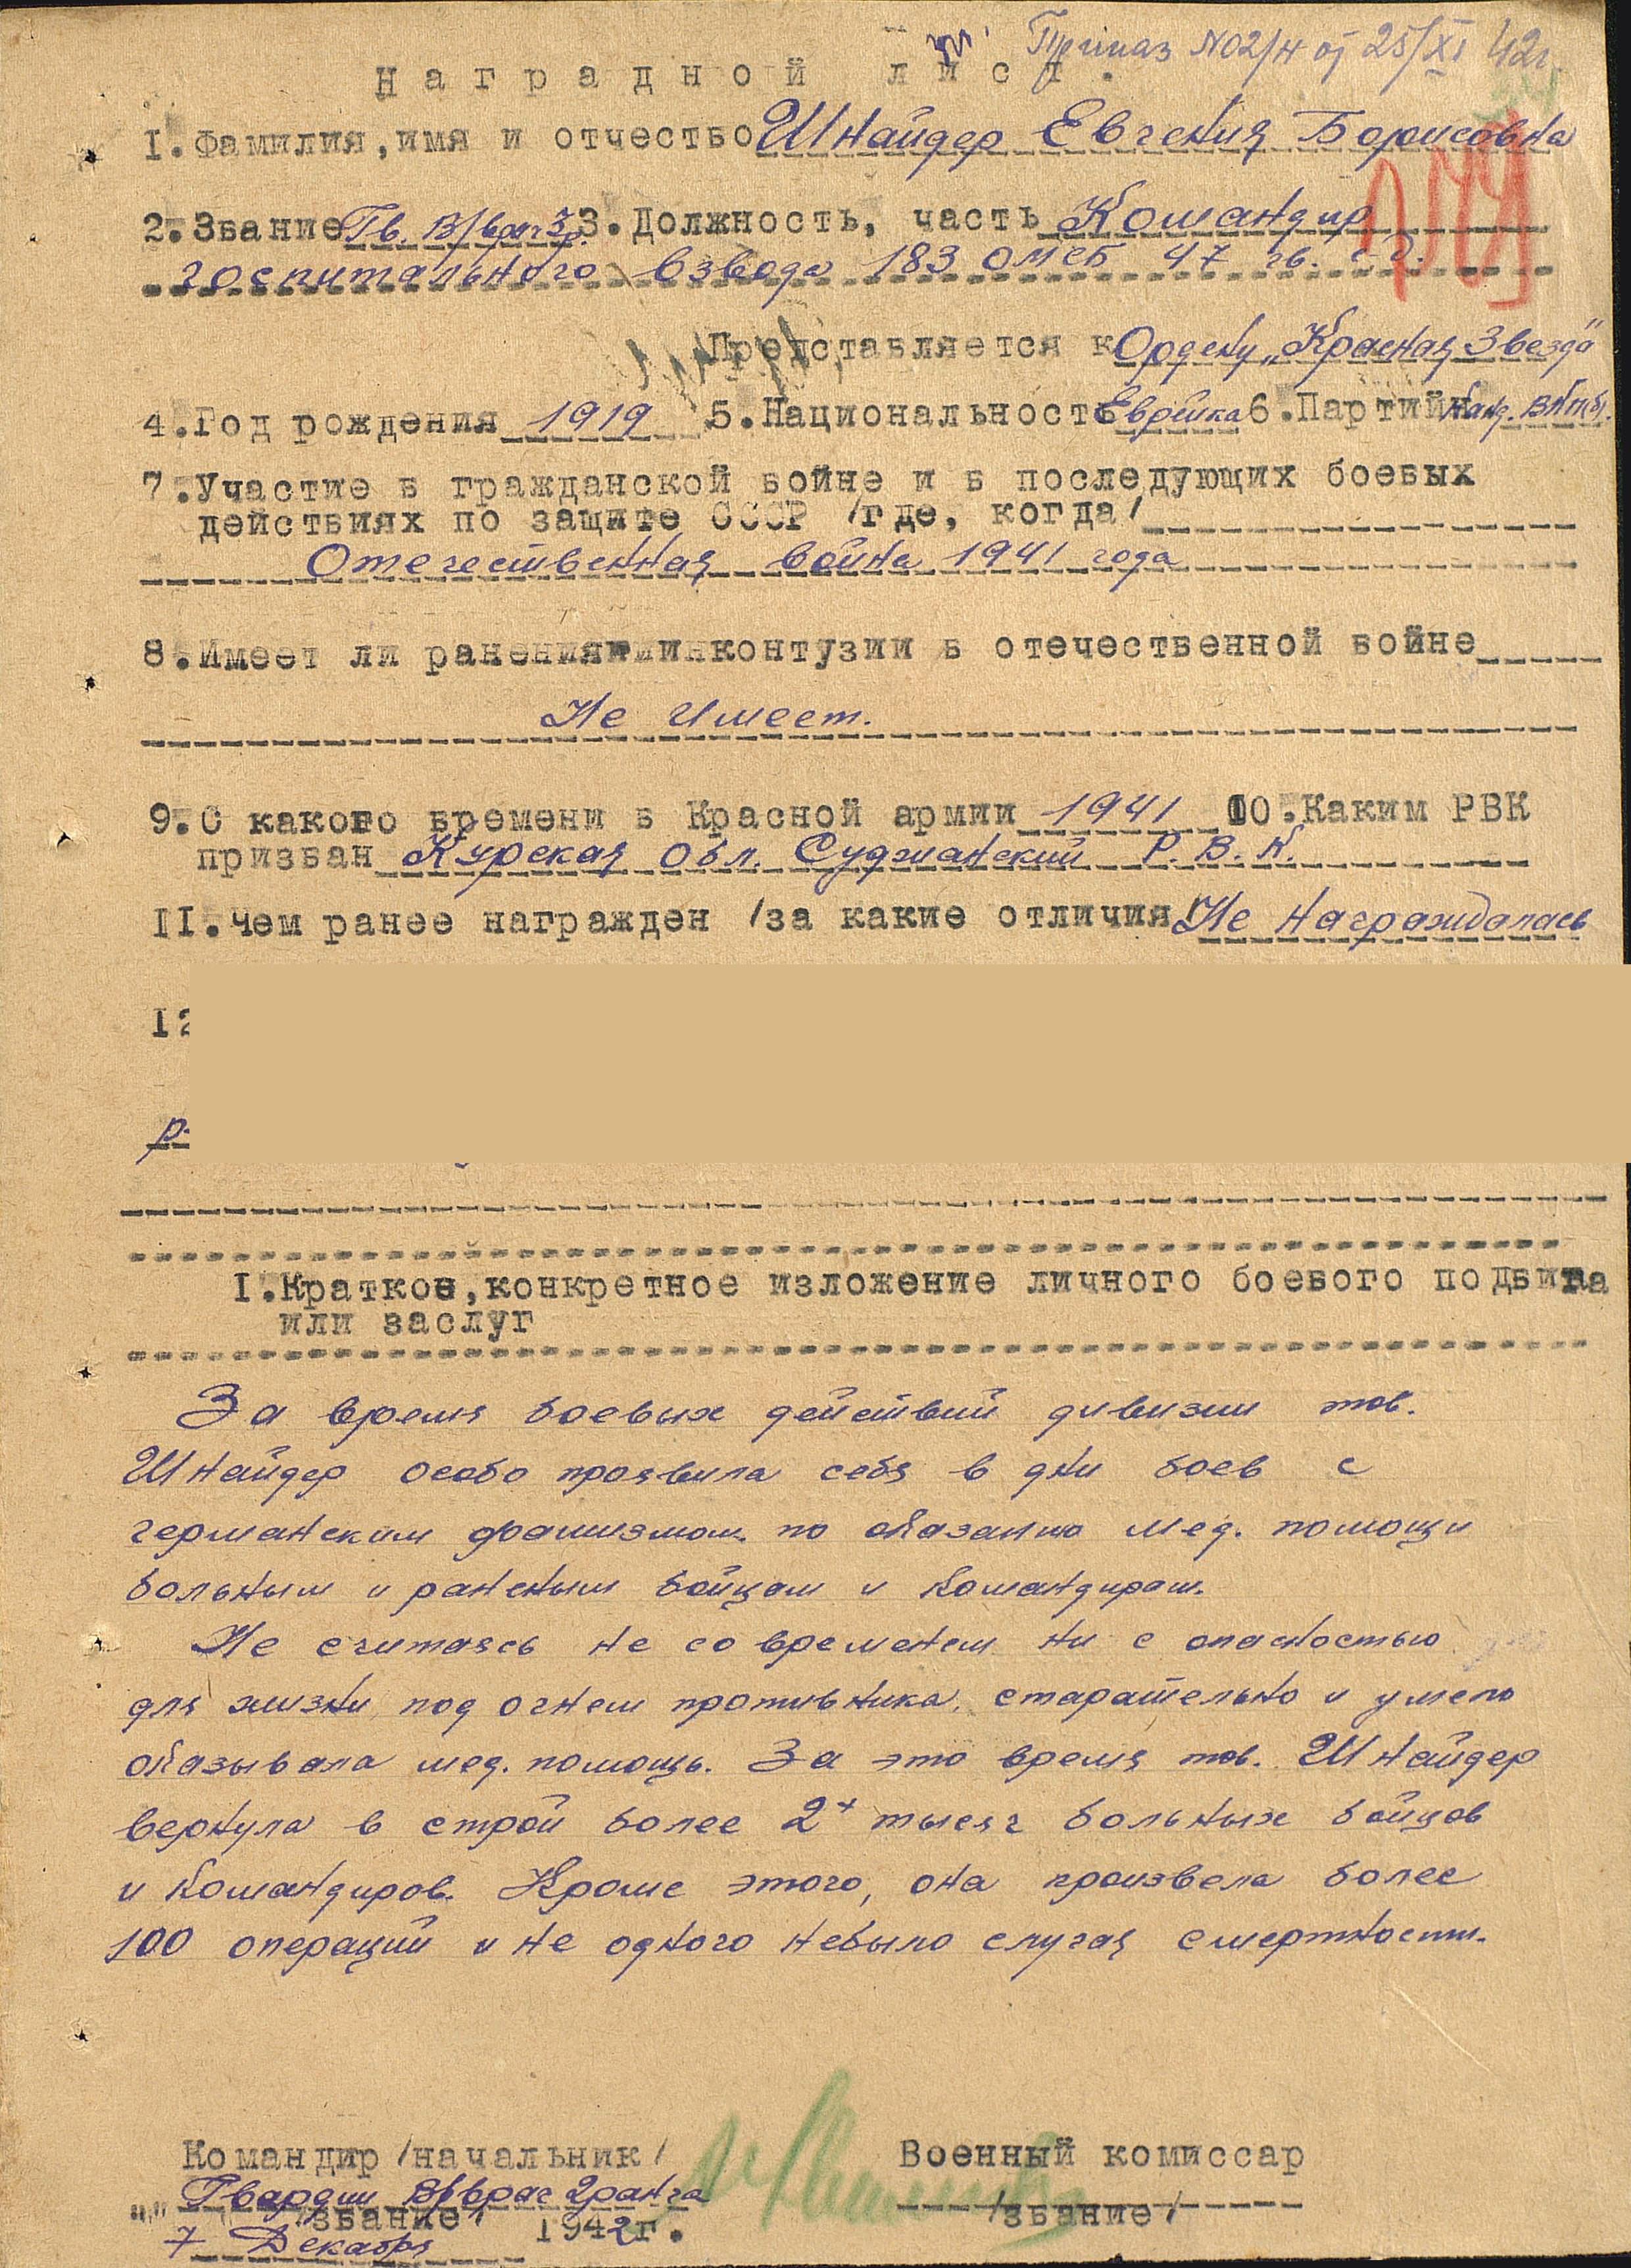 Приказ №02/н от 25/XI 42г.
Наградной лист.
I. Фамилия, имя и отчество Шнайдер Евгения Борисовна
2. Звание Гв. В/врач 3р. 3. Должность, часть Командир
госпитального взвода 183 ОМСБ 47 гв. с.д.
Представляется к Ордену „Красная Звезда"
4. Год рождения 1919 5. Национальность Еврейка 6. Партийн Канд. ВКП(б).
7. Участие в гражданской войне и в последующих боевых
действиях по защите СССР /где, когда/
Отечественная война 1941 года
8. Имеет ли ранения и контузии в отечественной войне
Не имеет.
9. С какого времени в Красной армии 1941 10. Каким РВК
призван Курская обл. Суджанский Р.В.К.
II. чем ранее награжден /за какие отличия/ Не награждалась
I2
р.
I. Краткое, конкретное изложение личного боевого подвига
или заслуг
За время боевых действий дивизии тов.
Шнайдер особо проявила себя в дни боев с
германским фашизмом по оказанию мед. помощи
больным и раненым бойцам и командирам.
Не считаясь не со временем ни с опасностью
для жизни под огнем противника, старательно и умело
оказывала мед. помощь. За это время тов. Шнайдер
вернула в строй более 2х тысяч больных бойцов
и командиров. Кроме этого, она произвела более
100 операций и не одного небыло случая смертности.
Командир /начальник/ Военный комиссар
Гвардии В/врач 2 ранга
"" /звание/ 1942г. /звание/
7 Декабря